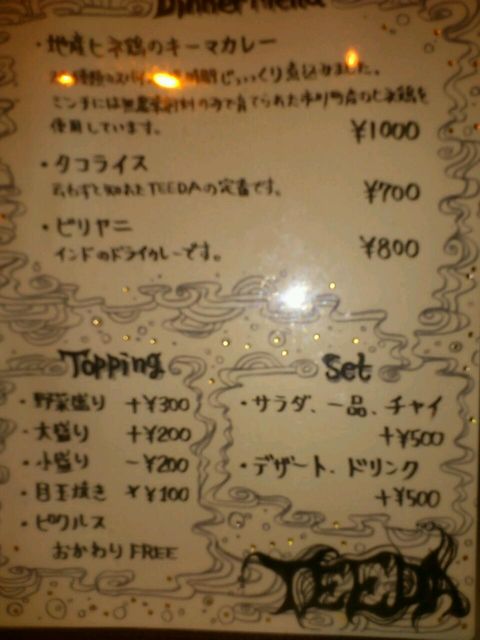 Dinner Menu
・地産ヒネ鶏のキーマカレー
じっくり煮込みました。
ミンチには無農薬 のみで育てられた 町産のヒネ鶏を
使用しています。 ¥1000
・タコライス
言わずと知れたTEEDAの定番です。 ¥700
・ビリヤニ
インドのドライカレーです。 ¥800
Topping
・野菜盛り +¥300
・大盛り +¥200
・小盛り -¥200
・目玉焼き +¥100
・ピクルス
おかわりFREE
Set
・サラダ、一品、チャイ
+¥500
・デザート、ドリンク
+¥500
TEEDA